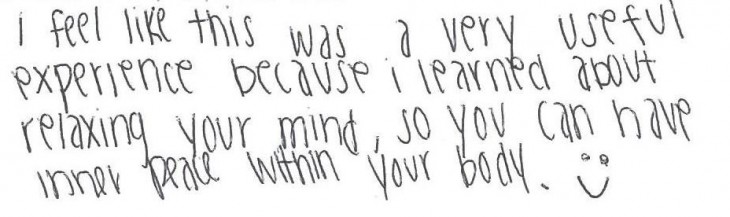 i feel like this was a very useful
experience because i learned about
relaxing your mind, so you can have
inner peace within your body. :)